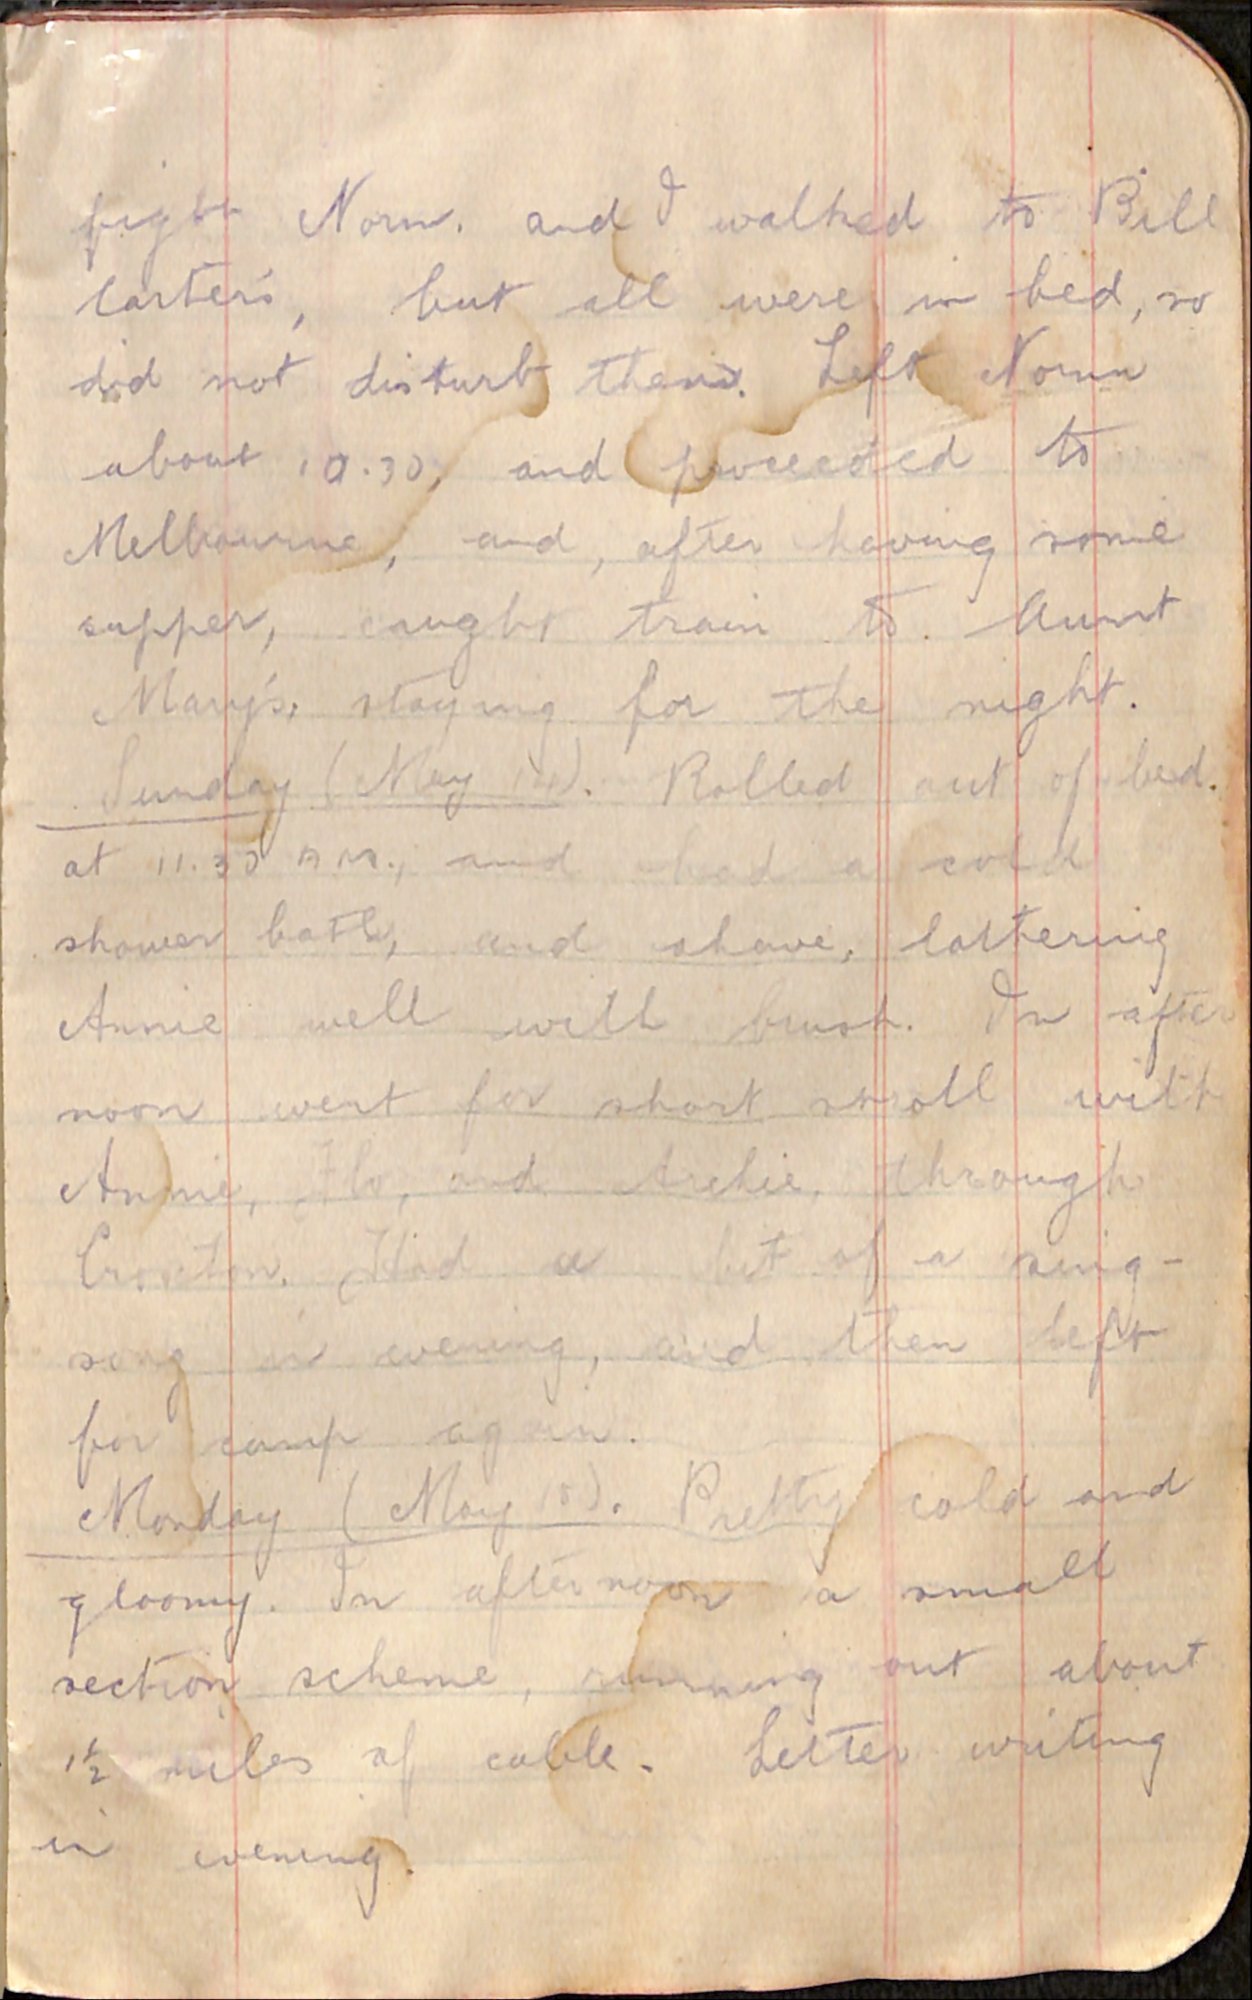 fight Norm. and I walked to Bill
Carter's, but all were in bed, so
did not disturb them. Left Norm
about 10.30, and proceeded to
Melbourne, and, after having some
supper, caught train to Aunt
Mary's, staying for the night.
Sunday (May 14). Rolled out of bed
at 11.30 A.M., and had a cold
shower bath, and shave, lathering
Annie well with brush. In after
noon went for short stroll with
Annie, Flo, and Archie, through
Croxton. Had a bit of a sing-
song in evening, and then left
for camp again.
Monday (May 15). Pretty cold and
gloomy. In afternoon a small
section scheme, running out about
1½ miles of cable. Letter writing
in evening.